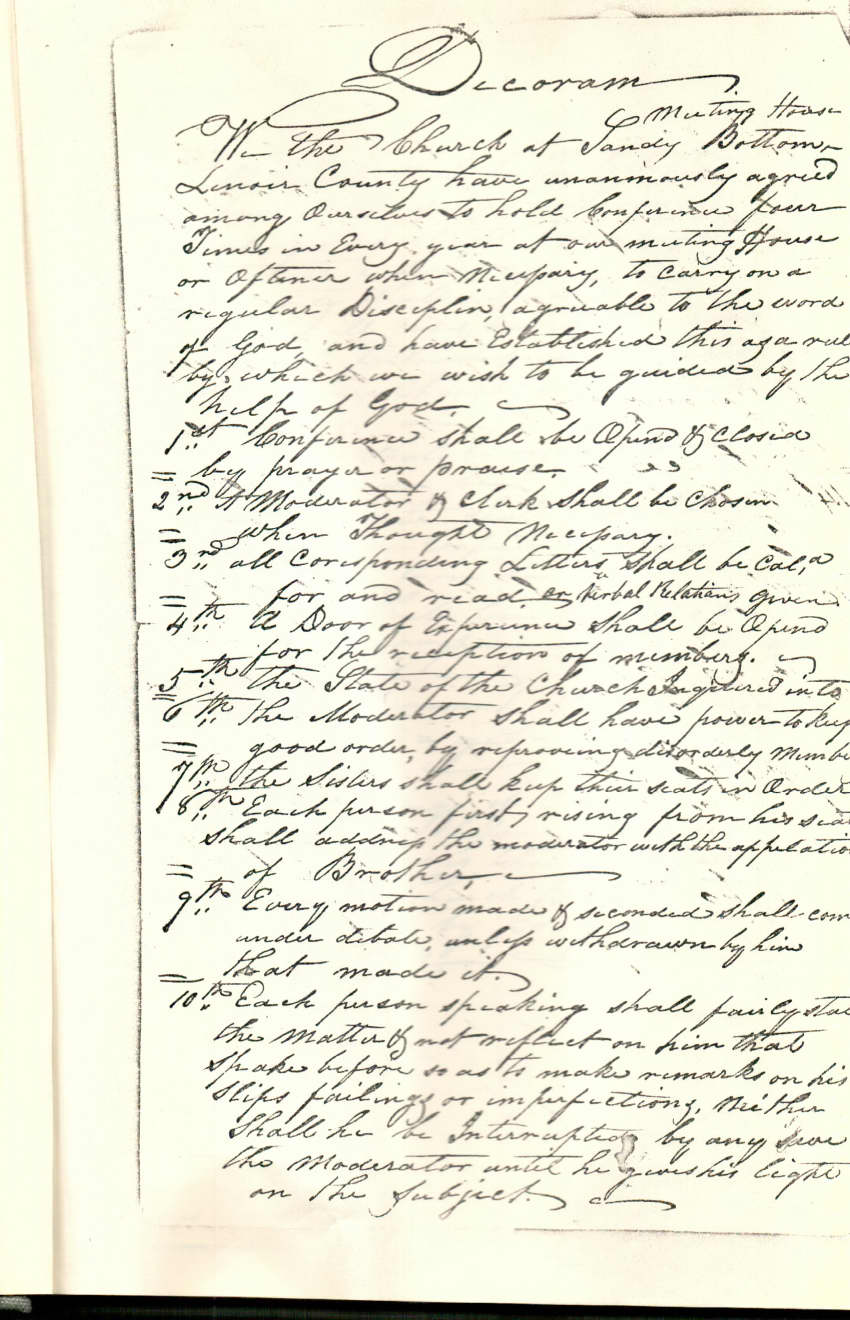 Decoram
Meeting House
We the Church at Sandy Bottom
Lenoir County have unanimously agreed
among Ourselves to hold Conference four
Times in Every year at our meeting House
or Oftener when Necessary, to carry on a
regular Disciplin, agreuable to the word
of God, and have Established this as a rul
by which we wish to be guided by the
help of God.
1st Conference shall be Opend & closed
by prayer or praise.
2nd A Moderator & Clerk shall be Chosen
when Thought Necessary.
3rd all Coresponding Letters shall be Cal,d
for and read or Verbal Relations given
4th A Door of Experience shall be Opend
for the reception of members.
5th the State of the Church Inquired into
6th the Moderator shall have power to keep
good order, by reproveing disorderly membe
7th the Sisters shall keep their seats in Order
8th Each person first rising from his sea
shall address the moderator with the appelatio
of Brother,
9th Every motion made & seconded shall com
under debate, unless withdrawn by him
that made it.
10th Each person speaking shall fairly sta
the Matter & not reflect on him that
spake before so as to make remarks on his
slips failings or imperfections, Neither
shall he be Interrupted by any save
the Moderator until he gives his light
on the subject.